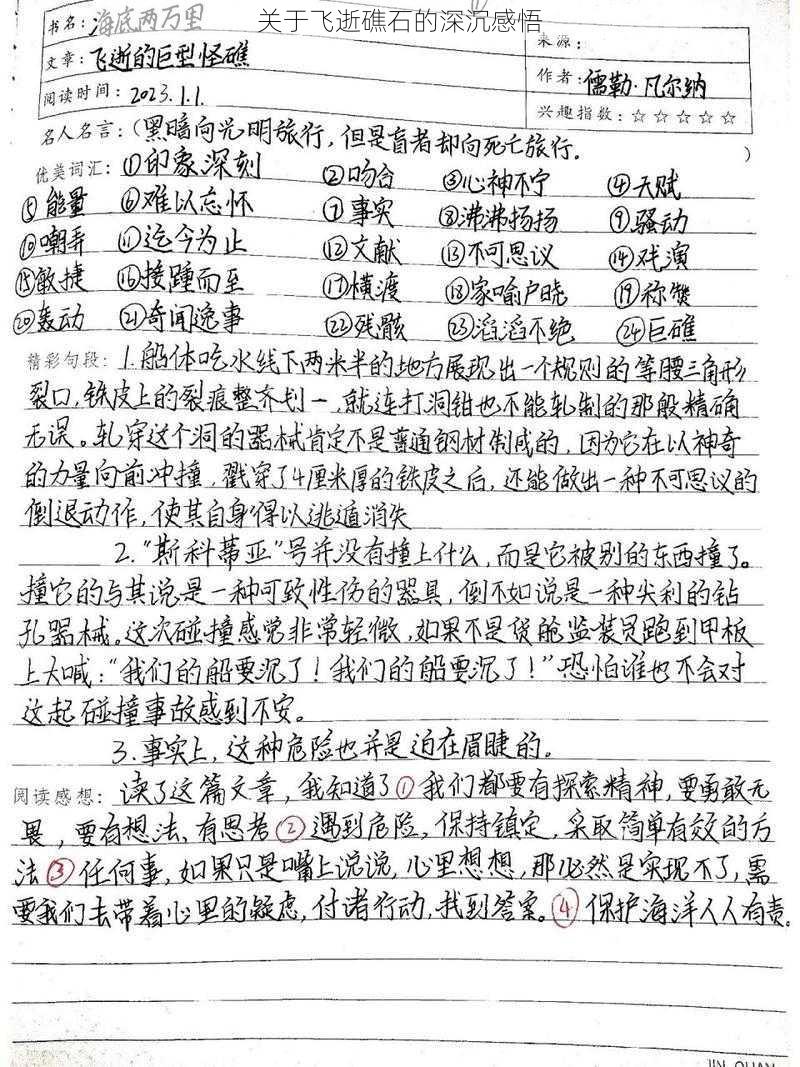 关于飞逝礁石的深沉感悟
书名：海底两万里
来源：
文章：飞逝的巨型怪礁
作者：儒勒·凡尔纳
阅读时间：2023.1.1.
兴趣指数：☆☆☆☆☆
名人名言：（黑暗向光明旅行，但是盲者却向死亡旅行。）
优美词汇：①印象深刻 ②吻合 ③心神不宁 ④天赋
⑤能量 ⑥难以忘怀 ⑦事实 ⑧沸沸扬扬 ⑨骚动
⑩嘲弄 ⑪迄今为止 ⑫文献 ⑬不可思议 ⑭戏演
⑮敏捷 ⑯接踵而至 ⑰横渡 ⑱家喻户晓 ⑲称赞
⑳轰动 ㉑奇闻逸事 ㉒残骸 ㉓滔滔不绝 ㉔巨礁
精彩句段：1.船体吃水线下两米半的地方展现出一个规则的等腰三角形
裂口，铁皮上的裂痕整齐划一，就连打洞钳也不能轧制的那般精确
无误。轧穿这个洞的器械肯定不是普通钢材制成的，因为它在以神奇
的力量向前冲撞，戳穿了4厘米厚的铁皮之后，还能做出一种不可思议的
倒退动作，使其自身得以逃遁消失
2.“斯科蒂亚”号并没有撞上什么，而是它被别的东西撞了。
撞它的与其说是一种可致性伤的器具，倒不如说是一种尖利的钻
孔器械。这次碰撞感觉非常轻微，如果不是货舱监装员跑到甲板
上大喊：“我们的船要沉了！我们的船要沉了！”恐怕谁也不会对
这起碰撞事故感到不安。
3.事实上，这种危险也并是迫在眉睫的。
阅读感想：读了这篇文章，我知道了①我们都要有探索精神，要勇敢无
畏，要有想法、有思考②遇到危险，保持镇定，采取简单有效的方
法③任何事，如果只是嘴上说说，心里想想，那必然是实现不了，需
要我们去带着心里的疑虑，付诸行动，找到答案。④保护海洋人人有责。